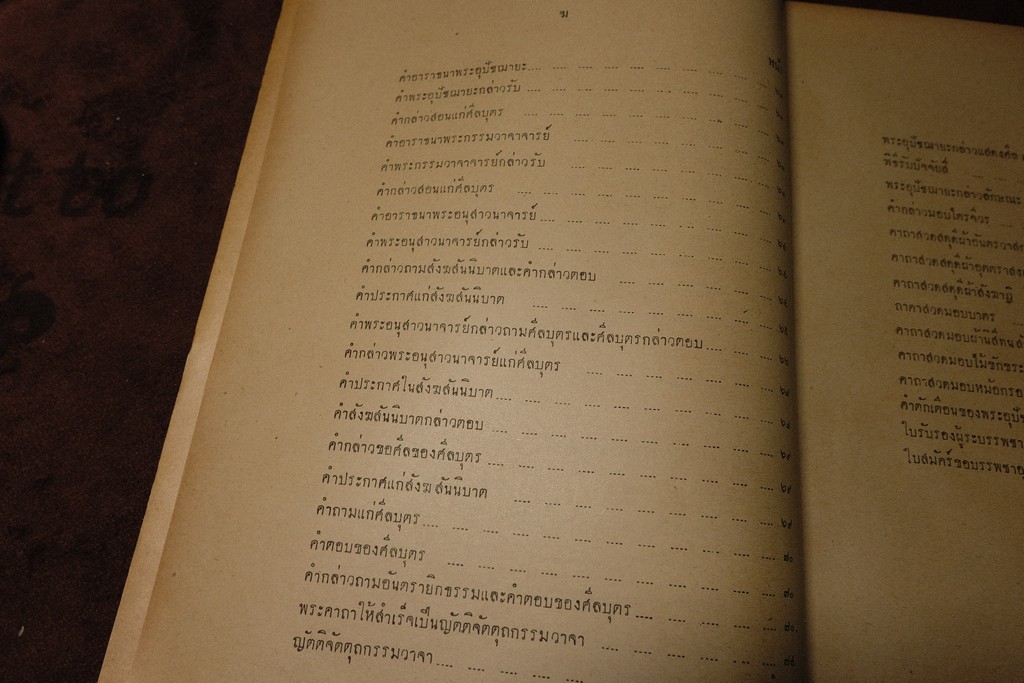 ฆ
หน้า
คำอาราธนาพระอุปัชฌายะ.... .... .... .... .... .... .... ....
คำพระอุปัชฌายะกล่าวรับ .... .... .... .... .... .... .... ....
คำกล่าวสอนแก่ศีลบุตร .... .... .... .... .... .... .... ....
คำอาราธนาพระกรรมวาจาจารย์ .... .... .... .... .... .... ....
คำพระกรรมวาจาจารย์กล่าวรับ .... .... .... .... .... .... ....
คำกล่าวสอนแก่ศีลบุตร .... .... .... .... .... .... .... ....
คำอาราธนาพระอนุสาวนาจารย์ .... .... .... .... .... .... ....
คำพระอนุสาวนาจารย์กล่าวรับ .... .... .... .... .... .... ....
คำกล่าวถามสังฆสันนิบาตและคำกล่าวตอบ .... .... .... .... ....
คำประกาศแก่สังฆสันนิบาต .... .... .... .... .... .... ....
คำพระอนุสาวนาจารย์กล่าวถามศีลบุตรและศีลบุตรกล่าวตอบ.... .... ๒๖
คำกล่าวพระอนุสาวนาจารย์แก่ศีลบุตร .... .... .... .... .... ....
คำประกาศในสังฆสันนิบาต .... .... .... .... .... .... ....
คำสังฆสันนิบาตกล่าวตอบ .... .... .... .... .... .... ....
คำกล่าวขอศีลของศีลบุตร .... .... .... .... .... .... .... ๒๙
คำประกาศแก่สังฆสันนิบาต .... .... .... .... .... .... .... ๒๙
คำถามแก่ศีลบุตร .... .... .... .... .... .... .... .... ๒๙
คำตอบของศีลบุตร .... .... .... .... .... .... .... .... ๓๐
คำกล่าวถามอันตรายิกธรรมและคำตอบของศีลบุตร .... .... .... .... ๓๐
พระคาถาให้สำเร็จเป็นญัตติจัตตุถกรรมวาจา .... .... .... .... ๓๐
ญัตติจัตตุถกรรมวาจา .... .... .... .... .... .... ....
พระอุปัชฌายะกล่าวแสดงคือ
พิธีรับปัจจัยสี่ ....
พระอุปัชฌายะกล่าวลักษณะ
คำกล่าวมอบไตรจีวร
คาถาสวดสดุดีผ้าอันตรวาส
คาถาสวดสดุดีผ้าอุตตราสง
คาถาสวดสดุดีผ้าสังฆาฏิ
ถาคาสวดมอบบาตร ....
คาถาสวดมอบผ้านิสีทนสัน
คาถาสวดมอบไม้ชักชระ
คาถาสวดมอบหม้อกรอง
คำตักเตือนของพระอุปัช
ใบรับรองผู้ระบรรพชา
ใบสมัครขอบรรพชาอุ